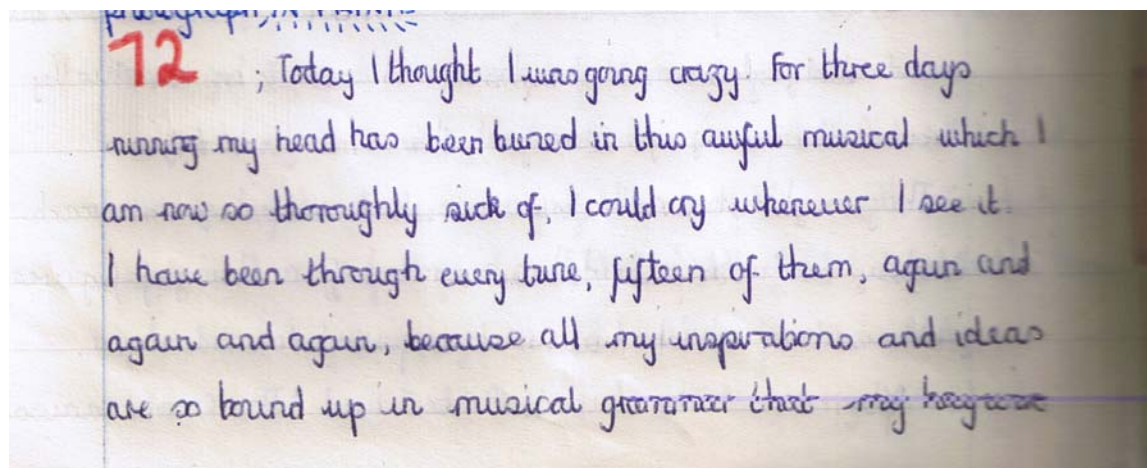 paragraph, IN
72 ; Today I thought I was going crazy. For three days
running my head has been buried in this awful musical which I
am now so thoroughly sick of, I could cry whenever I see it.
I have been through every tune, fifteen of them, again and
again and again, because all my inspirations and ideas
are so bound up in musical grammar that my